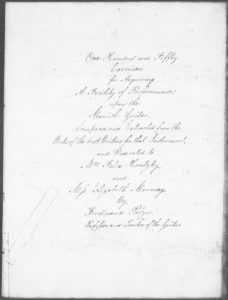 One Hundred and Fifty
Exercises
for Acquiring
A Facility of Performance
upon the
Spanish Guitar
Composed and Extracted from the
Works of the best Writers for that Instrument,
and Dedicated to
Mrs
and
Miss Elizabeth
By
Ferdinand Pelzer
Professor and Teacher of the Guitar